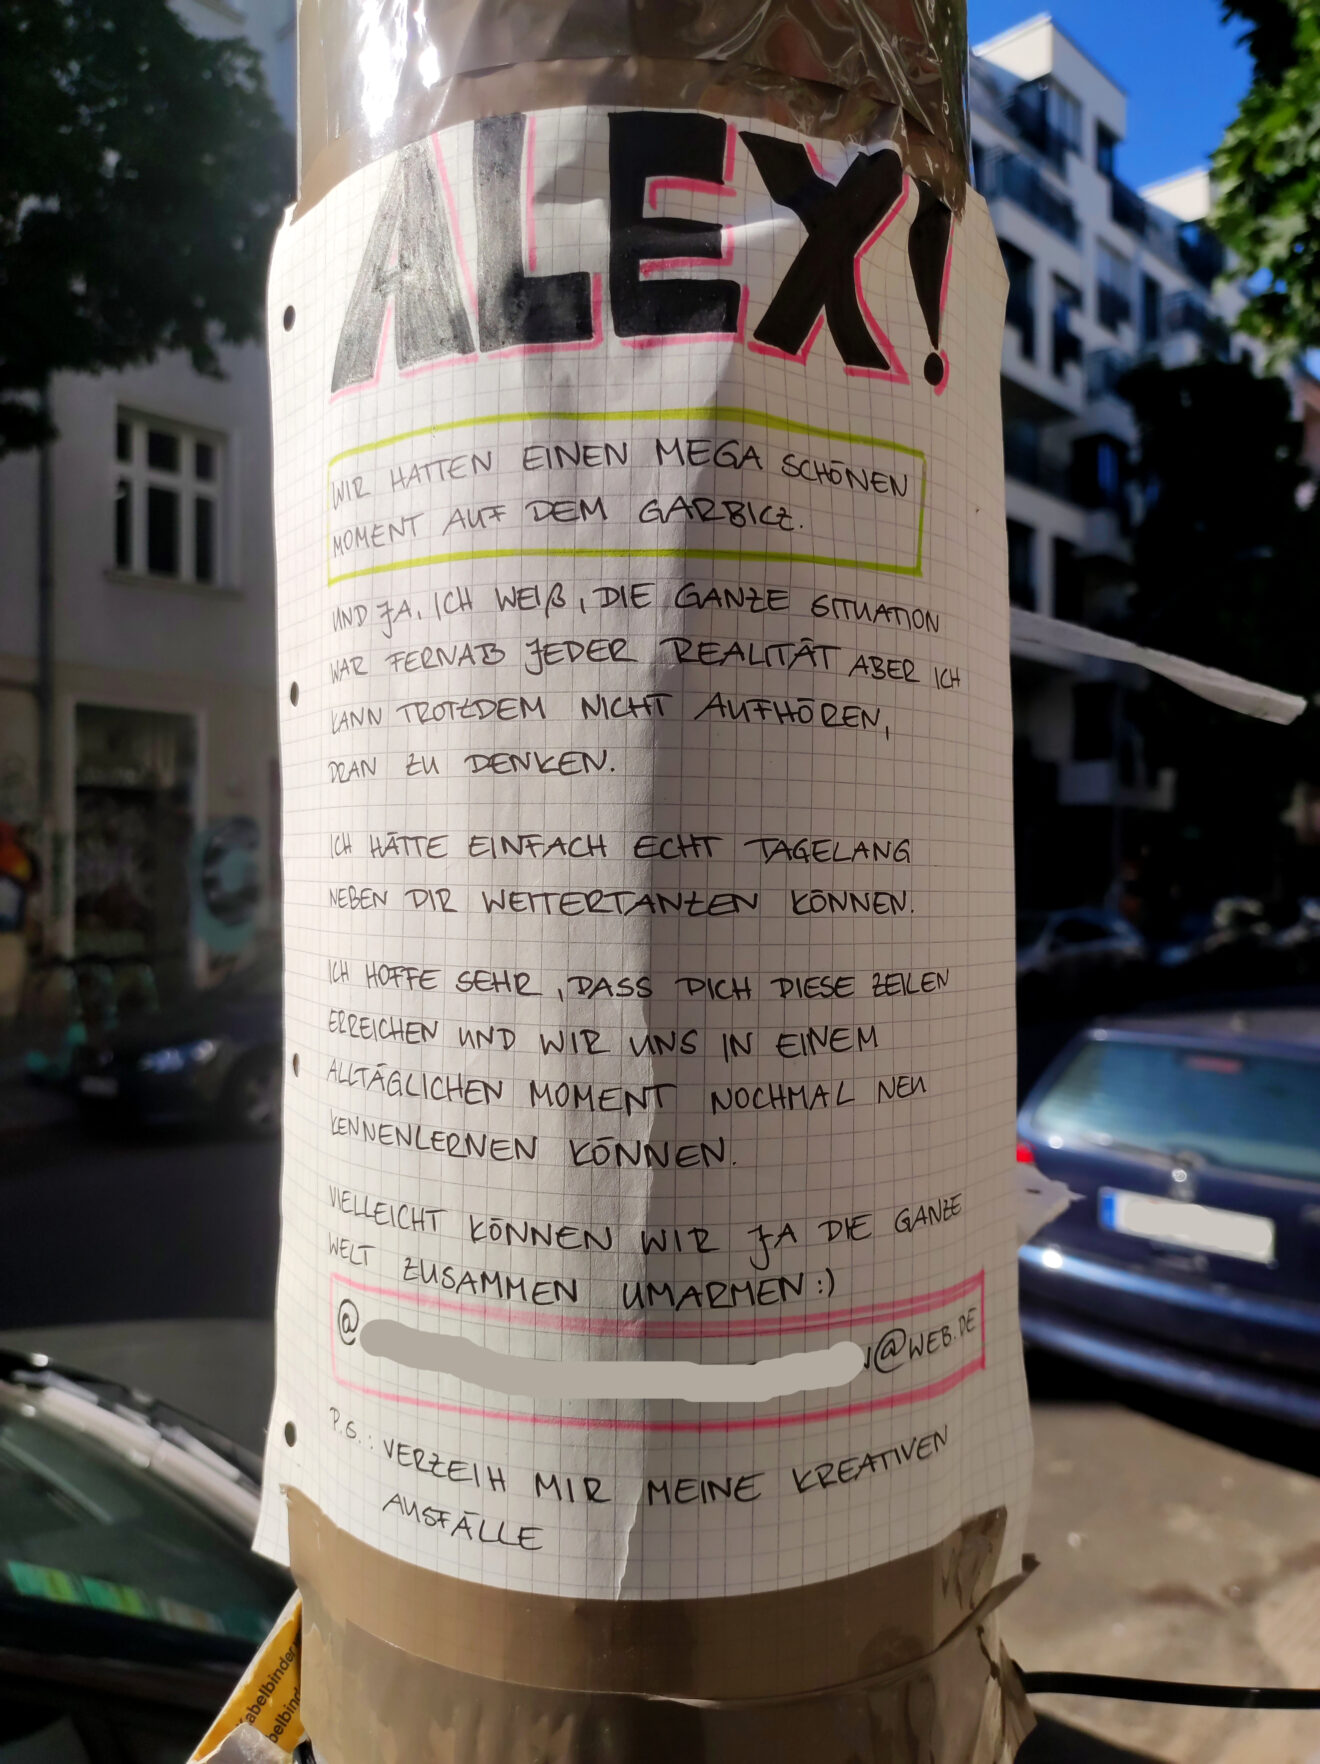 ALEX!
WIR HATTEN EINEN MEGA SCHÖNEN
MOMENT AUF DEM GARBICZ.
UND JA, ICH WEIß, DIE GANZE SITUATION
WAR FERNAB JEDER REALITÄT ABER ICH
KANN TROTZDEM NICHT AUFHÖREN,
DRAN ZU DENKEN.
ICH HÄTTE EINFACH ECHT TAGELANG
NEBEN DIR WEITERTANZEN KÖNNEN.
ICH HOFFE SEHR, DASS DICH DIESE ZEILEN
ERREICHEN UND WIR UNS IN EINEM
ALLTÄGLICHEN MOMENT NOCHMAL NEU
KENNENLERNEN KÖNNEN.
VIELLEICHT KÖNNEN WIR JA DIE GANZE
WELT ZUSAMMEN UMARMEN :)
@ @WEB.DE
P.S.: VERZEIH MIR MEINE KREATIVEN
AUSFÄLLE
abelbinder
belbind